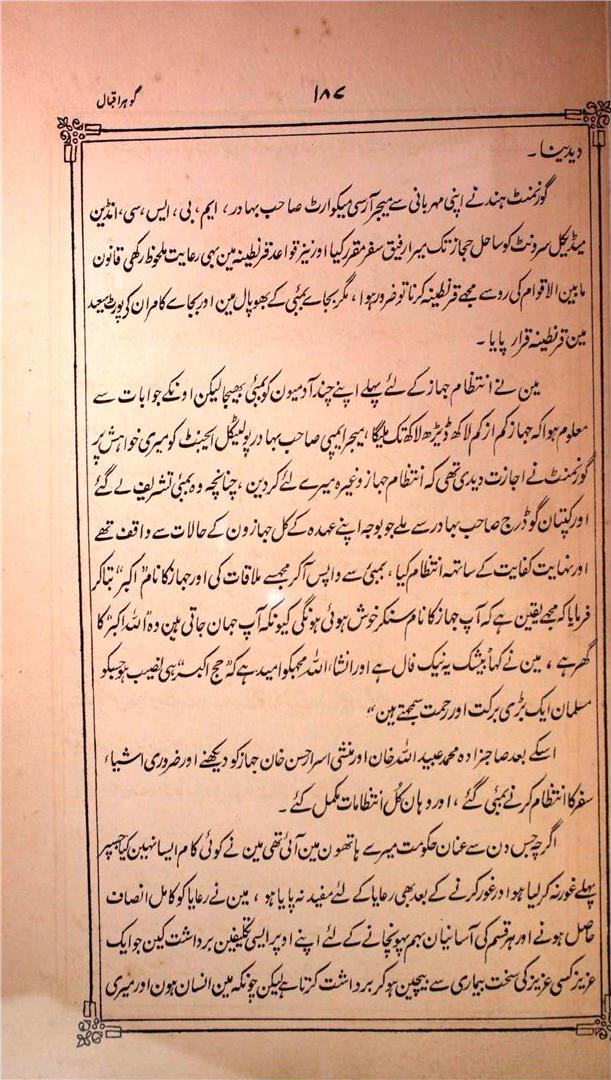 گوہر اقبال
۱۸۷
دیدینا ۔
گورنمنٹ ہند نے اپنی مہربانی سے میجر آر سی میکوارٹ صاحب بہادر، ایم، بی، ایس، سی، انڈین
میڈیکل سرونٹ کو ساحل حجاز تک میرا رفیق سفر مقرر کیا اور نیز قواعد قرنطینہ مین بھی رعایت ملحوظ رکھی قانون
مابین الاقوام کی رو سے مجھے قرنطینہ کرنا تو ضرور ہوا، مگر بجاے بمبئی کے بھوپال مین اور بجاے کامران کی پورٹ سعید
مین قرنطینہ قرار پایا ۔
مین نے انتظام جہاز کے لئے پہلے اپنے چند آدمیون کو بمبئی بھیجا لیکن اونکے جوابات سے
معلوم ہوا کہ جہاز کم از کم لاکھ ڈیڑھ لاکھ تک ملیگا، میجر ایمپی صاحب بہادر پولیٹکل ایجنٹ کو میری خواہش پر
گورنمنٹ نے اجازت دیدی تھی کہ انتظام جہاز وغیرہ میرے لئے کر دین، چنانچہ وہ بمبئی تشریف لے گئے
اور کپتان گوڈرج صاحب بہادر سے ملے جو بوجہ اپنے عہدہ کے کل جہازون کے حالات سے واقف تھے
اور نہایت کفایت کے ساتھہ انتظام کیا، بمبئی سے واپس آکر مجھسے ملاقات کی اور جہاز کا نام "اکبر" بتاکر
فرمایا کہ مجھے یقین ہے کہ آپ جہاز کا نام سنکر خوش ہوئی ہونگی کیونکہ آپ جہان جاتی ہین وہ "اللہ اکبر" کا
گھر ہے، مین نے کہا "بیشک یہ نیک فال ہے اور انشاء اللہ مجھکو امید ہے کہ "حج اکبر" ہی نصیب ہو جسکو
مسلمان ایک بڑی برکت اور رحمت سمجھتے ہین"
اسکے بعد صاحبزادہ محمد عبید اللہ خان اور منشی اسرار حسن خان جہاز کو دیکھنے اور ضروری اشیاء
سفر کا انتظام کرنے بمبئی گئے، اور وہان کل انتظامات مکمل کئے ۔
اگرچہ جس دن سے عنان حکومت میرے ہاتھون مین آئی تھی مین نے کوئی کام ایسا نہین کیا جسپر
پہلے غور نہ کر لیا ہو اور غور کرنے کے بعد بھی رعایا کے لئے مفید نہ پایا ہو، مین نے رعایا کو کامل انصاف
حاصل ہونے اور ہر قسم کی آسانیان بہم پہونچانے کے لئے اپنے اوپر ایسی تکلیفین برداشت کین جو ایک
عزیز کسی عزیز کی سخت بیماری سے بیچین ہوکر برداشت کرتا ہے لیکن چونکہ مین انسان ہون اور میری